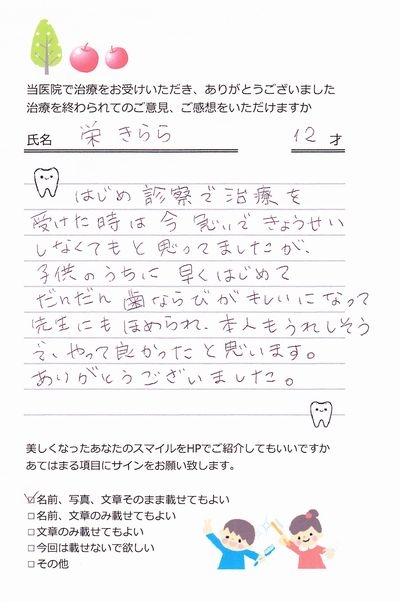 当医院で治療をお受けいただき、ありがとうございました
治療を終わられてのご意見、ご感想をいただけますか
氏名 栄 きらら 12 才
はじめ 診察で治療を
受けた時は 今 急いで きょうせい
しなくてもと思ってましたが、
子供のうちに 早くはじめて
だんだん 歯ならびが キレいになって
先生にも ほめられ、本人もうれしそう
で、やって良かったと思います。
ありがとうございました。
美しくなったあなたのスマイルをHPでご紹介してもいいですか
あてはまる項目にサインをお願い致します。
☑名前、写真、文章そのまま載せてもよい
□名前、文章のみ載せてもよい
□文章のみ載せてもよい
□今回は載せないで欲しい
□その他